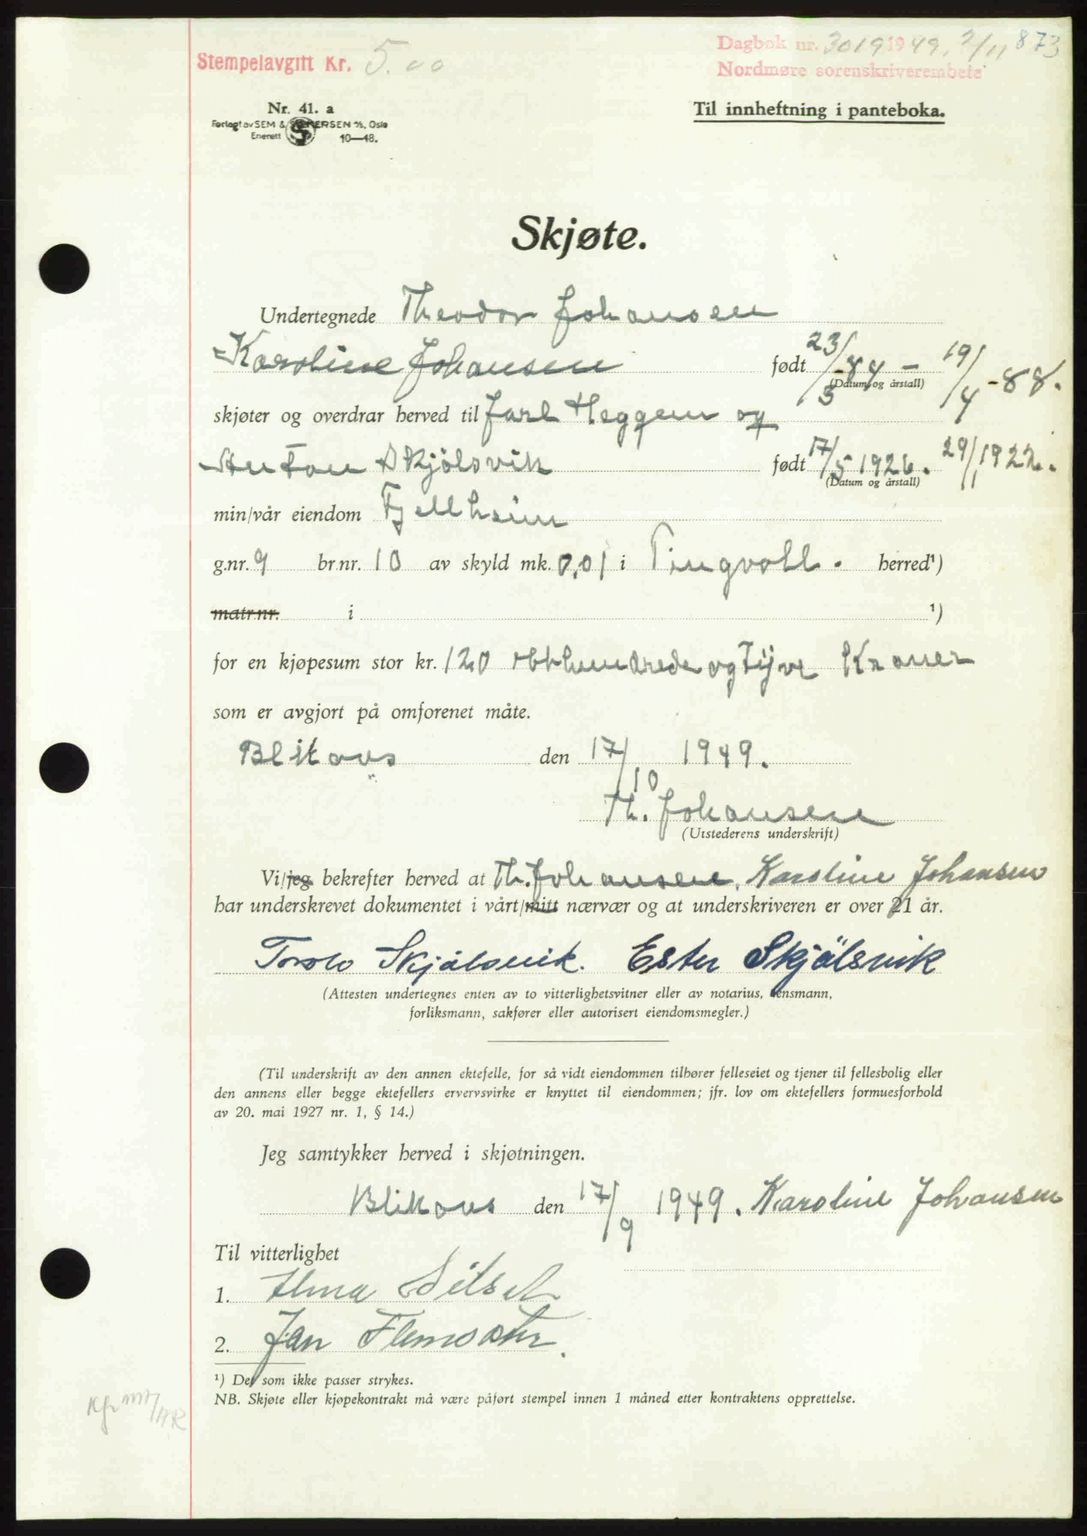 Stempelavgift Kr. 5.00
Dagbok nr. 3019 1949, 2/11 873
Nordmøre sorenskriverembete
Nr. 41. a
Forlagt av SEM & STENERSEN A/S, Oslo
Enerett 10—48.
Til innheftning i panteboka.
Skjøte.
Undertegnede Theodor Johansen
Karoline Johansen født 23/5 -84 - 19/4 -88.
(Datum og årstall)
skjøter og overdrar herved til Jarl Heggem og
Anton Skjölsvik født 17/5 1926. 29/1 1922.
(Datum og årstall)
min/vår eiendom Fjellheim
g.nr. 9 br.nr. 10 av skyld mk. 0,01 i Tingvoll. herred¹)
matr.nr. i ¹)
for en kjøpesum stor kr. 120 ethundrede og Tyve Kroner
som er avgjort på omforenet måte.
den 17/10 1949.
Th. Johansen
(Utstederens underskrift)
Vi/jeg bekrefter herved at Th. Johansen, Karoline Johansen
har underskrevet dokumentet i vårt/mitt nærvær og at underskriveren er over 21 år.
Skjölsvik. Ester Skjölsvik
(Attesten undertegnes enten av to vitterlighetsvitner eller av notarius, lensmann,
forliksmann, sakfører eller autorisert eiendomsmegler.)
(Til underskrift av den annen ektefelle, for så vidt eiendommen tilhører felleseiet og tjener til fellesbolig eller
den annens eller begge ektefellers ervervsvirke er knyttet til eiendommen; jfr. lov om ektefellers formuesforhold
av 20. mai 1927 nr. 1, § 14.)
Jeg samtykker herved i skjøtningen.
den 17/9 1949. Karoline Johansen
Til vitterlighet
1. Alma
2. Jan
¹) Det som ikke passer strykes.
NB. Skjøte eller kjøpekontrakt må være påført stempel innen 1 måned etter kontraktens opprettelse.